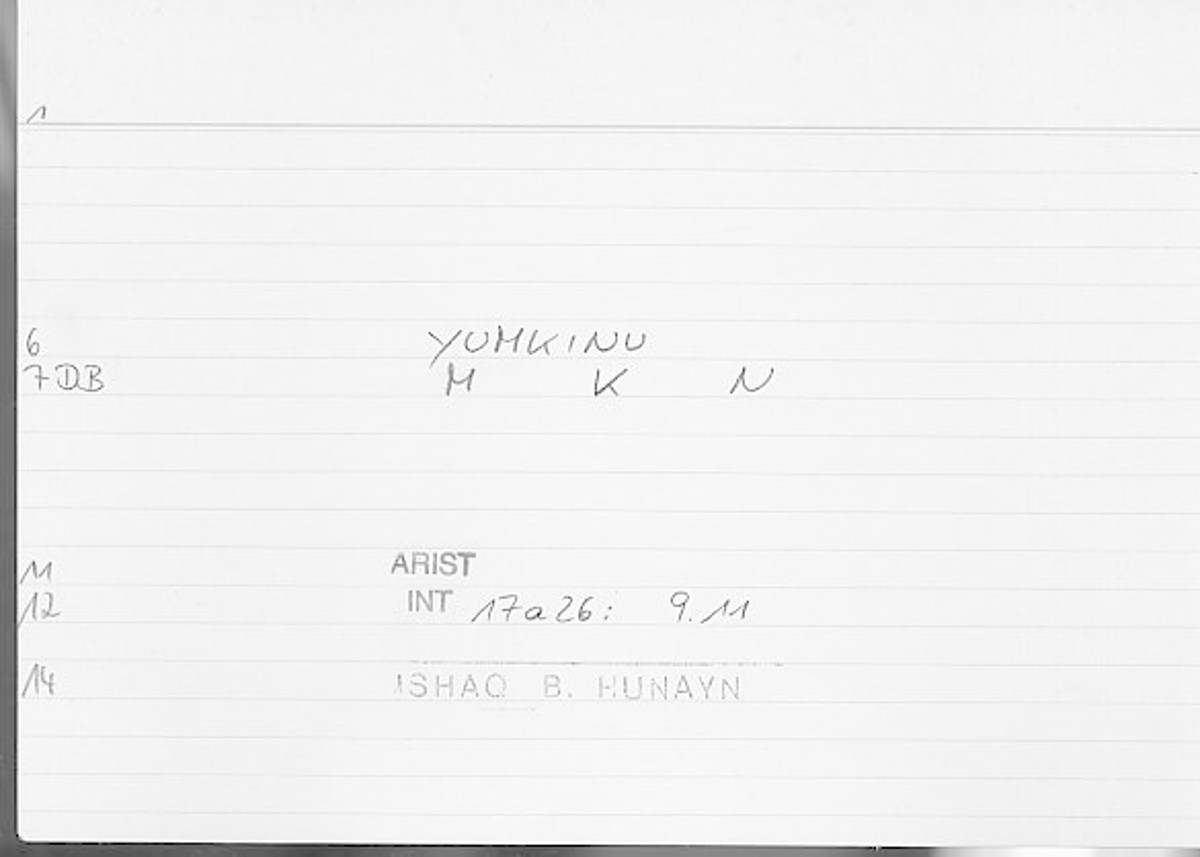 1
6 YUMKINU
7DB M K N
11 ARIST
12 INT 17a26: 9.11
14 ISHAQ B. HUNAYN